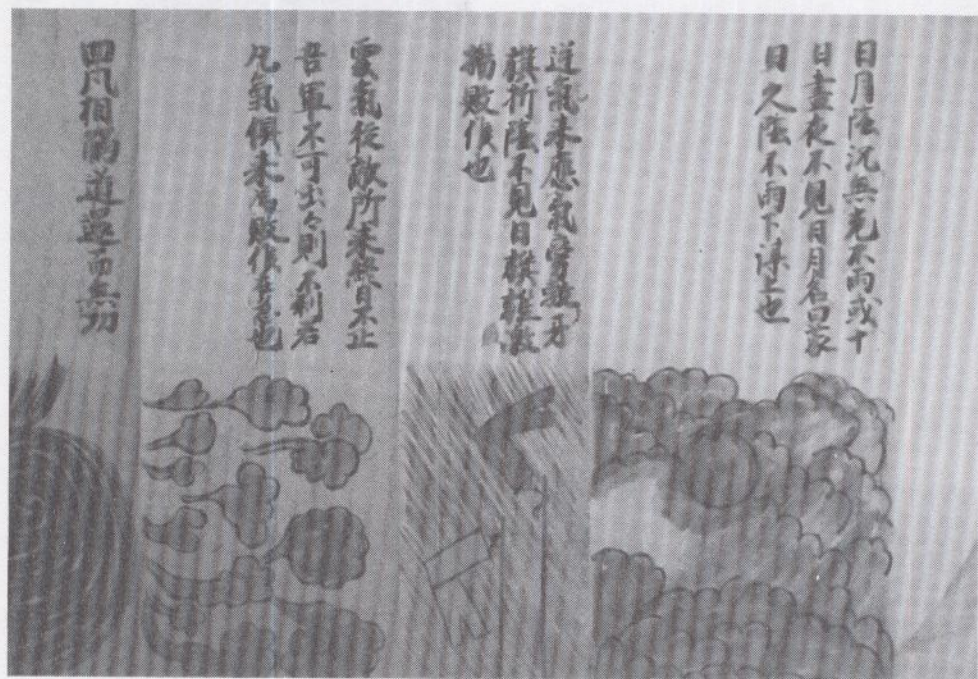 日月陰沉無光不雨或十
日晝夜不見日月名曰蒙
日久陰不雨下謀上也
逆氣來應氣旁牙
旗折陰不見日旗雖激
揚敗信也
雲氣從敵所來終日不止
吾軍不可出々則不利若
凡氣俱來為敗信也
四凡相觸道還而無功